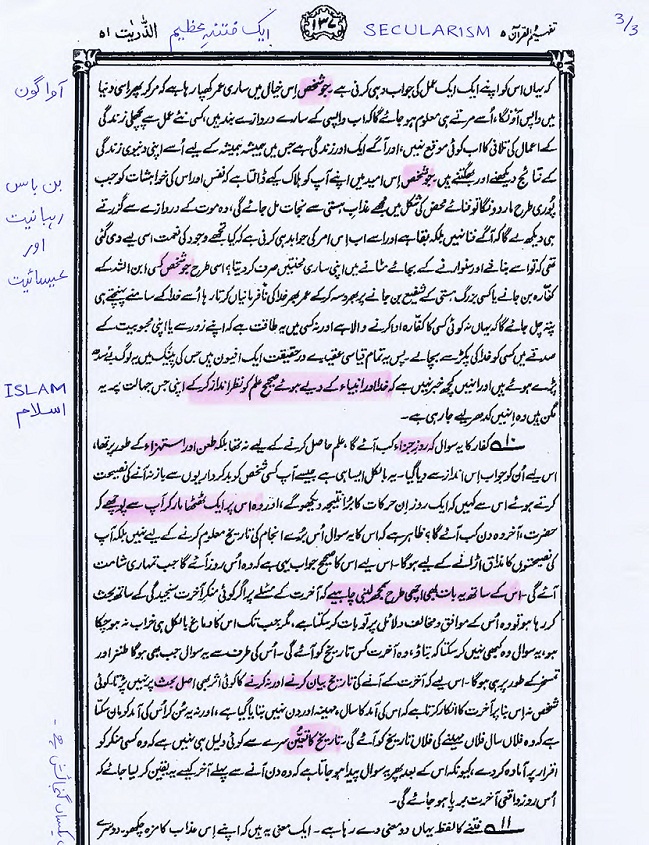 3/3
تفہیم القرآن ۵
SECULARISM
۱۳۷
ایک فتنۂ عظیم
الذّٰریٰت ۵۱
آواگون
بن باس
رہبانیت
اور
عیسائیت
ISLAM
اسلام
کہ یہاں اس کو اپنے ایک ایک عمل کی جواب دہی کرنی ہے۔ جو شخص اِس خیال میں ساری عمر کھپا رہا ہے کہ مر کر پھر اسی دنیا
میں واپس آؤنگا، اُسے مرتے ہی معلوم ہو جائے گا کہ اب واپسی کے سارے دروازے بند ہیں، کسی نئے عمل سے پچھلی زندگی
کے اعمال کی تلافی کا اب کوئی موقع نہیں، اور آگے ایک اور زندگی ہے جس میں ہمیشہ ہمیشہ کے لیے اُسے اپنی دنیوی زندگی
کے نتائج دیکھنے اور بھگتنے ہیں۔ جو شخص اِس امید میں اپنے آپ کو ہلاک کیے ڈالتا ہے کہ نفس اور اس کی خواہشات کو جب
پُوری طرح مار دونگا تو فنائے محض کی شکل میں مجھے عذابِ ہستی سے نجات مل جائے گی، وہ موت کے دروازے سے گزرتے
ہی دیکھ لے گا کہ آگے فنا نہیں بلکہ بقا ہے اور اسے اب اِس امر کی جوابدہی کرنی ہے کہ کیا تجھے وجود کی نعمت اسی لیے دی گئی
تھی کہ تو اسے بنانے اور سنوارنے کے بجائے مٹانے میں اپنی ساری محنتیں صرف کر دیتا؟ اسی طرح جو شخص کسی ابن اللہ کے
کفّارہ بن جانے یا کسی بزرگ ہستی کے شفیع بن جانے پر بھروسہ کر کے عمر بھر خدا کی نافرمانیاں کرتا رہا اُسے خدا کے سامنے پہنچتے ہی
پتہ چل جائے گا کہ یہاں نہ کوئی کسی کا کفّارہ ادا کرنے والا ہے اور نہ کسی میں یہ طاقت ہے کہ اپنے زور سے یا اپنی محبوبیت کے
صدقے میں کسی کو خدا کی پکڑ سے بچا لے۔ پس یہ تمام قیاسی عقیدے در حقیقت ایک افیون ہیں جس کی پینک میں یہ لوگ بے سُدھ
پڑے ہوئے ہیں اور انہیں کچھ خبر نہیں ہے کہ خدا اور انبیاء کے دیے ہوئے صحیح علم کو نظر انداز کر کے اپنی جس جہالت پر یہ
مگن ہیں وہ اِنہیں کدھر لیے جا رہی ہے۔
۱۰ کفار کا یہ سوال کہ روزِ جزاء کب آئے گا، علم حاصل کرنے کے لیے نہ تھا بلکہ طعن اور استہزاء کے طور پر تھا،
اس لیے اُن کو جواب اِس انداز سے دیا گیا۔ یہ بالکل ایسا ہی ہے جیسے آپ کسی شخص کو بد کرداریوں سے باز نہ آنے کی نصیحت
کرتے ہوئے اس سے کہیں کہ ایک روز اِن حرکات کا بُرا نتیجہ دیکھو گے، اور وہ اس پر ایک ٹھٹھا مار کر آپ سے پوچھے کہ
حضرت، آخر وہ دن کب آئے گا؟ ظاہر ہے کہ اس کا یہ سوال اُس بُرے انجام کی تاریخ معلوم کرنے کے لیے نہیں بلکہ آپ
کی نصیحتوں کا مذاق اڑانے کے لیے ہو گا۔ اس لیے اس کا صحیح جواب یہی ہے کہ وہ اُس روز آئے گا جب تمہاری شامت
آئے گی۔ اس کے ساتھ یہ بات بھی اچھی طرح سمجھ لینی چاہیے کہ آخرت کے مسئلے پر اگر کوئی منکرِ آخرت سنجیدگی کے ساتھ بحث
کر رہا ہو تو وہ اُس کے موافق و مخالف دلائل پر تو بات کر سکتا ہے، مگر جب تک اس کا دماغ بالکل ہی خراب نہ ہو چکا
ہو، یہ سوال وہ کبھی نہیں کر سکتا کہ بتاؤ، وہ آخرت کس تاریخ کو آئے گی۔ اُس کی طرف سے یہ سوال جب بھی ہو گا طنز اور
تمسخر کے طور پر ہی ہوگا۔ اس لیے کہ آخرت کے آنے کی تاریخ بیان کرنے اور نہ کرنے کا کوئی اثر بھی اصل بحث پر نہیں پڑتا۔ کوئی
شخص نہ اِس بنا پر آخرت کا انکار کرتا ہے کہ اس کی آمد کا سال، مہینہ اور دن نہیں بتایا گیا ہے، اور نہ یہ سُن کر اُس کی آمد کو مان سکتا
ہے کہ وہ فلاں سال فلاں مہینے کی فلاں تاریخ کو آئے گی۔ تاریخ کا تعیُّن سرے سے کوئی دلیل ہی نہیں ہے کہ وہ کسی منکر کو
اقرار پر آمادہ کر دے، کیونکہ اس کے بعد پھر یہ سوال پیدا ہو جاتا ہے کہ وہ دن آنے سے پہلے آخر کیسے یہ یقین کر لیا جائے کہ
اُس روز واقعی آخرت برپا ہو جائے گی۔
۱۱ فتنے کا لفظ یہاں دو معنی دے رہا ہے۔ ایک معنی یہ ہیں کہ اپنے اِس عذاب کا مزہ چکھو۔ دوسرے